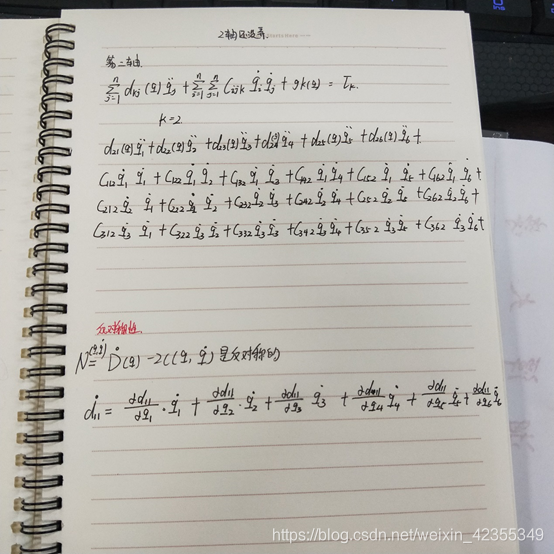 第二轴
∑_{j=1}^{n} d_{kj}(q)q̈_j + ∑_{i=1}^{n} ∑_{j=1}^{n} C_{ijk} q̇_i q̇_j + g_k(q) = τ_k.
K=2
d_{21}(q)q̈_1 + d_{22}(q)q̈_2 + d_{23}(q)q̈_3 + d_{24}(q)q̈_4 + d_{25}(q)q̈_5 + d_{26}(q)q̈_6 +
C_{112}q̇_1 q̇_1 + C_{122}q̇_1 q̇_2 + C_{132}q̇_1 q̇_3 + C_{142}q̇_1 q̇_4 + C_{152}q̇_1 q̇_5 + C_{162}q̇_1 q̇_6 +
C_{212}q̇_2 q̇_1 + C_{222}q̇_2 q̇_2 + C_{232}q̇_2 q̇_3 + C_{242}q̇_2 q̇_4 + C_{252}q̇_2 q̇_5 + C_{262}q̇_2 q̇_6 +
C_{312}q̇_3 q̇_1 + C_{322}q̇_3 q̇_2 + C_{332}q̇_3 q̇_3 + C_{342}q̇_3 q̇_4 + C_{352}q̇_3 q̇_5 + C_{362}q̇_3 q̇_6 +
反对称性.
N(q,q̇) = Ḋ(q) - 2C(q, q̇) 是反对称的
ḋ_{11} = ∂d_{11}/∂q_1 · q̇_1 + ∂d_{11}/∂q_2 · q̇_2 + ∂d_{11}/∂q_3 q̇_3 + ∂d_{11}/∂q_4 q̇_4 + ∂d_{11}/∂q_5 q̇_5 + ∂d_{11}/∂q_6 q̇_6
https://blog.csdn.net/weixin_42355349